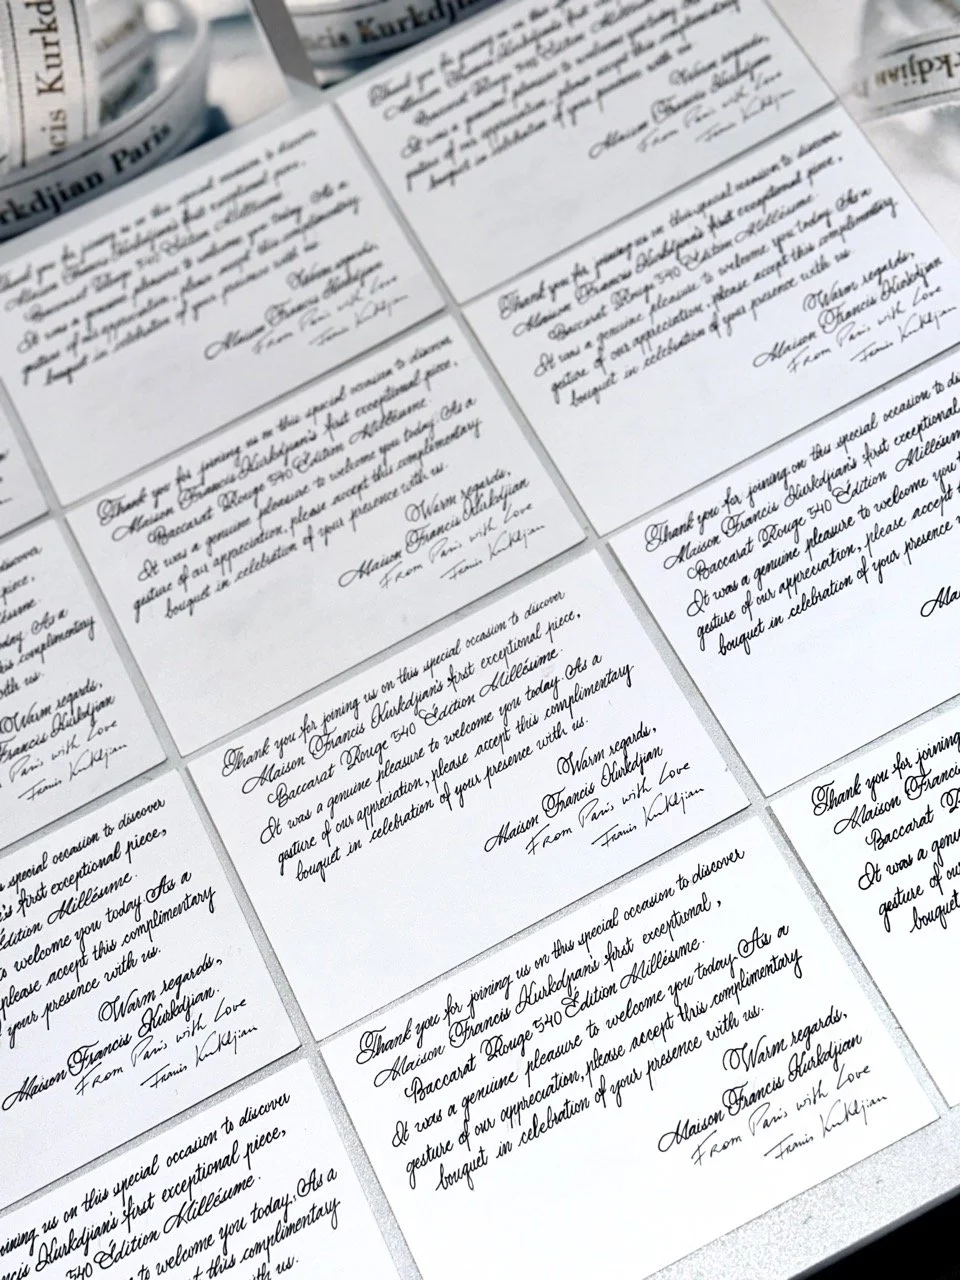 cis Kurkd
rkdjian Paris
ncis Kurkdjian
rkdjian
Thank you for joining us on this special
Maison Francis Kurkdjian's first
Baccarat Rouge 540 Édition Millésime.
It was a genuine pleasure to welcome you today. As a
gesture of our appreciation, please accept this complimentary
bouquet in celebration of your presence with us.
Warm regards,
Maison Francis Kurkdjian
From Paris with Love
Francis Kurkdjian
Thank you for joining us on this special occasion to discover
Maison Francis Kurkdjian's first exceptional piece,
Baccarat Rouge 540 Édition Millésime.
It was a genuine pleasure to welcome you today. As a
gesture of our appreciation, please accept this complimentary
bouquet in celebration of your presence with us.
Warm regards,
Maison Francis Kurkdjian
From Paris with Love
Francis Kurkdjian
Thank you for joining us on this special occasion to discover
Maison Francis Kurkdjian's first exceptional piece,
Baccarat Rouge 540 Édition Millésime.
It was a genuine pleasure to welcome you today. As a
gesture of our appreciation, please accept this complimentary
bouquet in celebration of your presence with us.
Warm regards,
Maison Francis Kurkdjian
From Paris with Love
Francis Kurkdjian
Thank you for joining us on this special occasion to discover
Maison Francis Kurkdjian's first exceptional piece,
Baccarat Rouge 540 Édition Millésime.
It was a genuine pleasure to welcome you today. As a
gesture of our appreciation, please accept this complimentary
bouquet in celebration of your presence with us.
Warm regards,
Maison Francis Kurkdjian
From Paris with Love
Francis Kurkdjian
Thank you for joining on this special occasion to dis
Maison Francis Kurkdjian's first exceptional
Baccarat Rouge 540 Édition Millésim
It was a genuine pleasure to welcome you t
gesture of our appreciation, please accept
bouquet in celebration of your presence
Mai
discover
piece,
ésime.
today. As a
this complimentary
with us.
Warm regards,
Francis Kurkdjian
Paris with Love
Francis Kurkdjian
Thank you for joining us on this special occasion to discover
Maison Francis Kurkdjian's first exceptional piece,
Baccarat Rouge 540 Édition Millésime.
It was a genuine pleasure to welcome you today. As a
gesture of our appreciation, please accept this complimentary
bouquet in celebration of your presence with us.
Warm regards,
Maison Francis Kurkdjian
From Paris with Love
Francis Kurkdjian
Thank you for joining
Maison Francis
Baccarat
It was a genu
gesture of ou
bouquet
special occasion to discover
's first exceptional piece,
Édition Millésime.
to welcome you today. As a
please accept this complimentary
your presence with us.
Warm regards,
Maison Francis Kurkdjian.
From Paris with Love
Francis Kurkdjian
Thank you for joining us on this special occasion to discover
Maison Francis Kurkdjian's first exceptional ,
Baccarat Rouge 540 Édition Millésime.
It was a genuine pleasure to welcome you today. As a
gesture of our appreciation, please accept this complimentary
bouquet in celebration of your presence with us.
Warm regards,
Maison Francis Kurkdjian
From Paris with Love
Francis Kurkdjian
joining us on this special occasion to discover
ncis Kurkdjian's first exceptional piece,
540 Édition Millésime.
to welcome you today. As a
t this complimentary
th us.